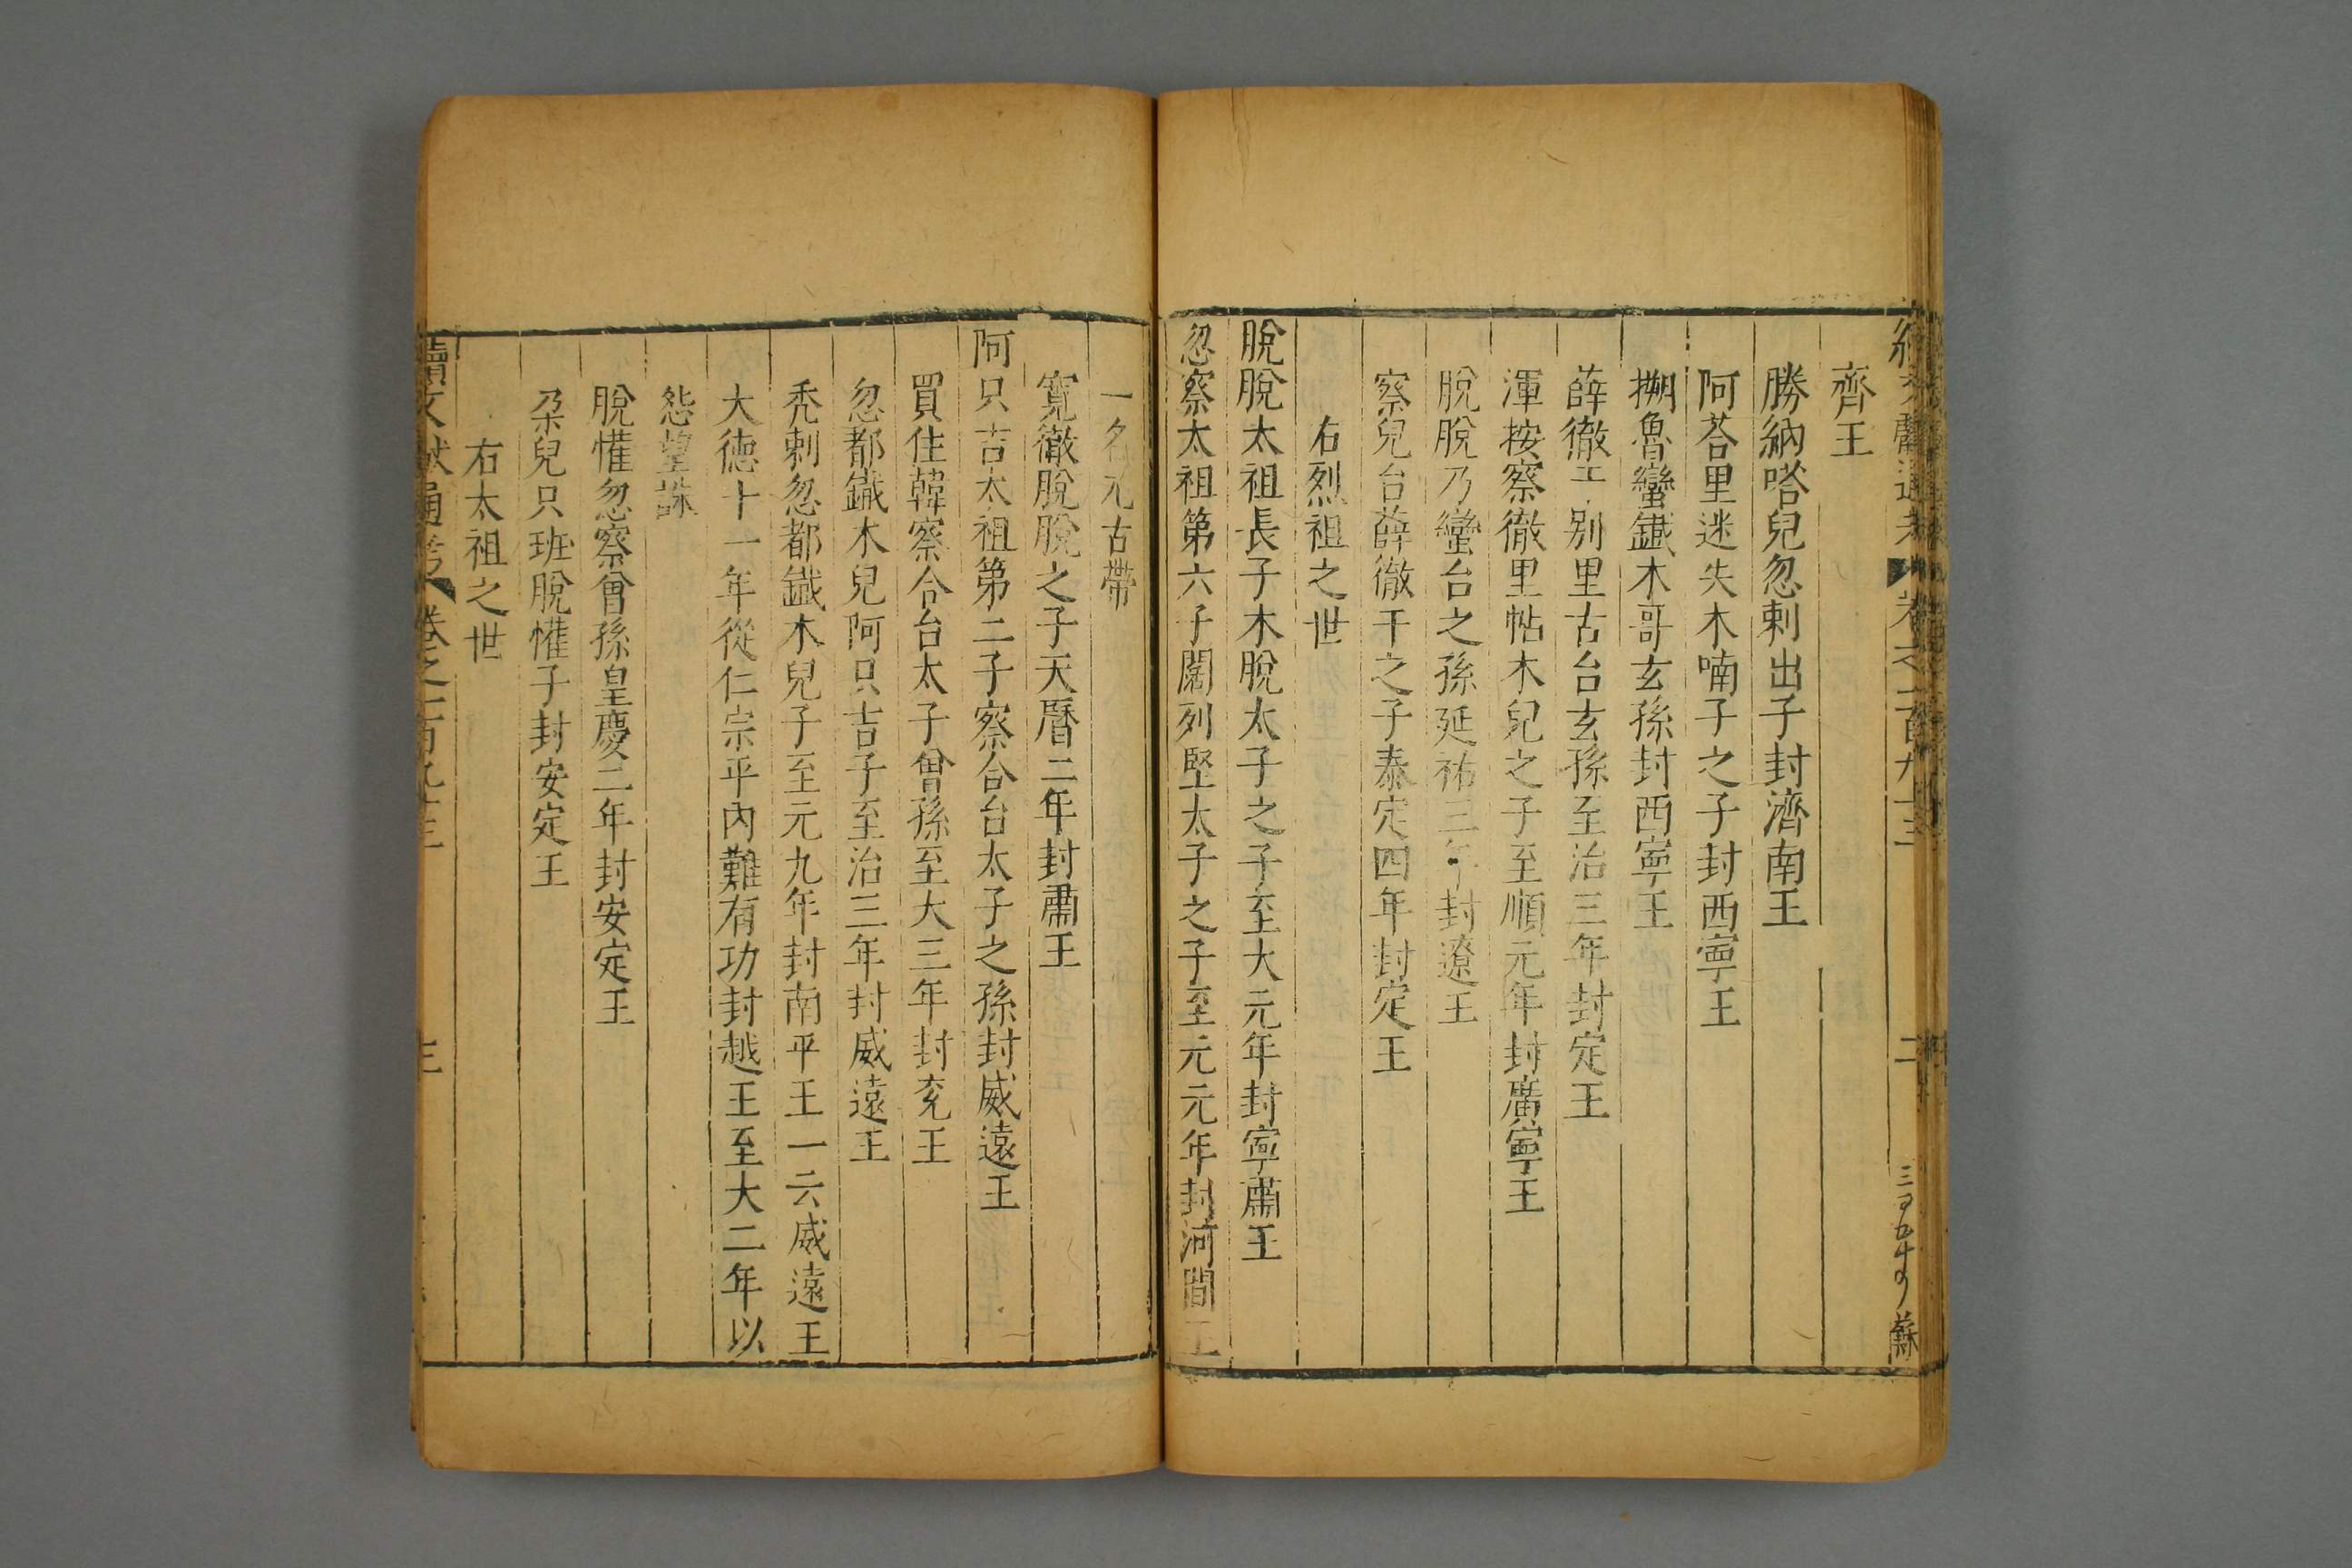 續文獻通考 卷之二百九十三 二 三百五十四 蘇
齊王
勝納嗒兒忽剌出子封濟南王
阿荅里迷失木喃子之子封西寧王
搠魯蠻鐵木哥玄孫封西寧王
薛徹干別里古台玄孫至治三年封定王
渾按察徹里帖木兒之子至順元年封廣寧王
脫脫乃蠻台之孫延祐三年封遼王
察兒台薛徹干之子泰定四年封定王
右烈祖之世
脫脫太祖長子木脫太子之子至大元年封寧肅王
忽察太祖第六子闊列堅太子之子至元元年封河間王
一名兀古帶
寬徹脫脫之子天曆二年封肅王
阿只吉太祖第二子察合台太子之孫封威遠王
買住韓察合台太子曾孫至大三年封兖王
忽都鐵木兒阿只吉子至治三年封威遠王
禿剌忽都鐵木兒子至元九年封南平王一云威遠王
大德十一年從仁宗平內難有功封越王至大二年以
怨望誅
脫懽忽察曾孫皇慶二年封安定王
朶兒只班脫懽子封安定王
右太祖之世
續文獻通考 卷之二百九十三 三